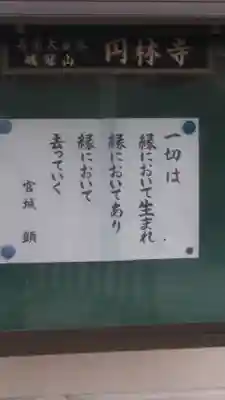 円林寺
一切は
縁において生まれ
縁においてあり
縁において
去っていく
宮城 顗